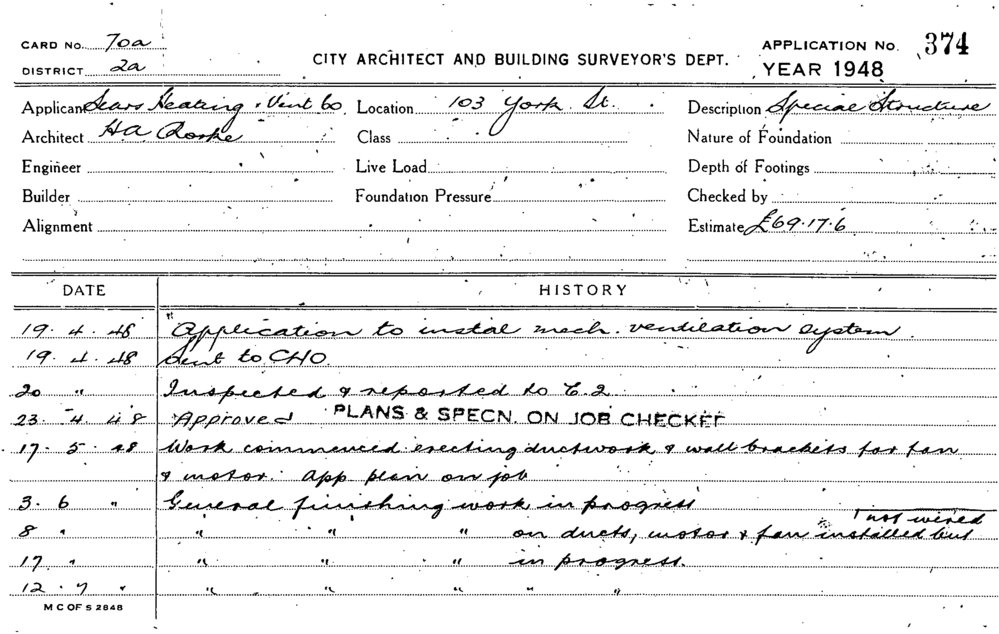 CARD NO. 70a
DISTRICT 2a
CITY ARCHITECT AND BUILDING SURVEYOR'S DEPT.
APPLICATION NO. 374
YEAR 1948
Applicant Sears Heating & Vent Co Location 103 York St. Description Special Structure
Architect H A Rorke Class Nature of Foundation
Engineer Live Load Depth of Footings
Builder Foundation Pressure Checked by
Alignment Estimate £69.17.6
DATE HISTORY
19. 4. 48 Application to instal mech. ventilation system
19. 4. 48 Sent to CHO
20 " Inspected & reported to C.2
23. 4. 48 Approved PLANS & SPECN. ON JOB CHECKET
17. 5. 48 Work commenced erecting ductwork & wall brackets for fan
& motor. App plan on job
3. 6 " General finishing work in progress
not wired
8 " " " " on ducts, motor & fan installed but
17 " " " " in progress.
12. 7 " " " " " "
M C OF S 2848